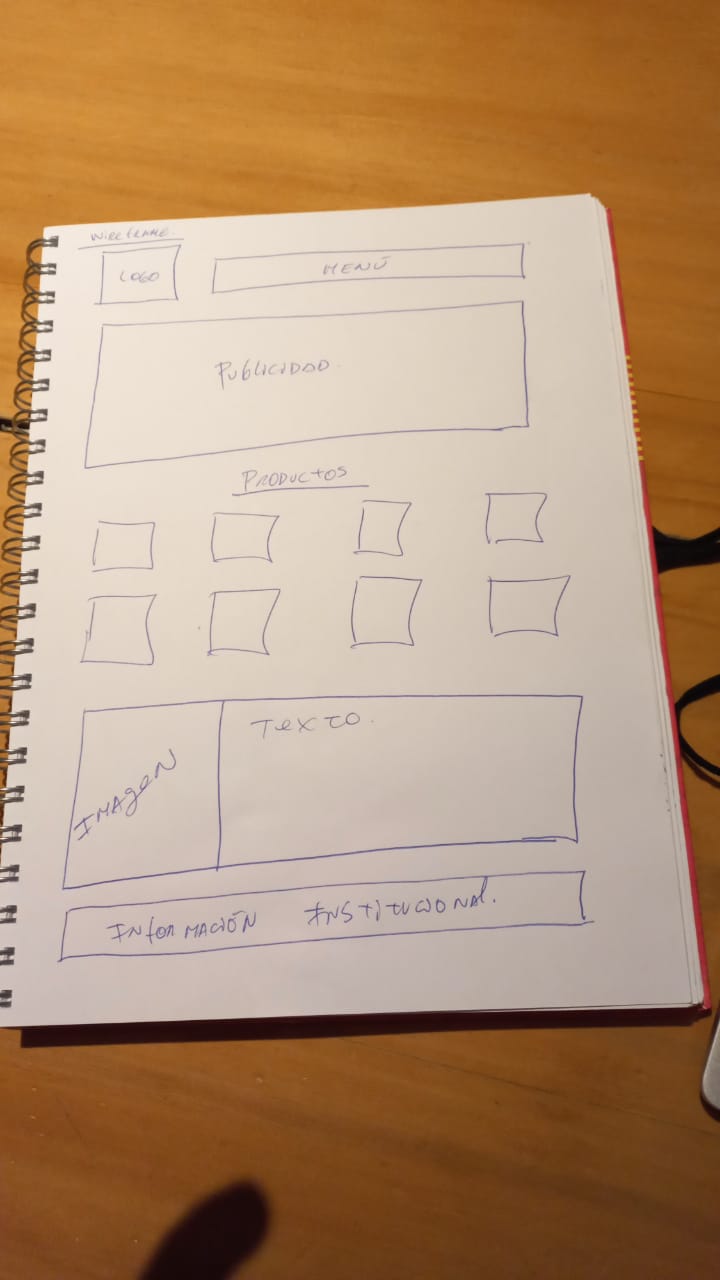 WIREFRAME.
LOGO
MENÚ
PUBLICIDAD.
PRODUCTOS
IMAGEN
TEXTO.
INFORMACIÓN INSTITUCIONAL.